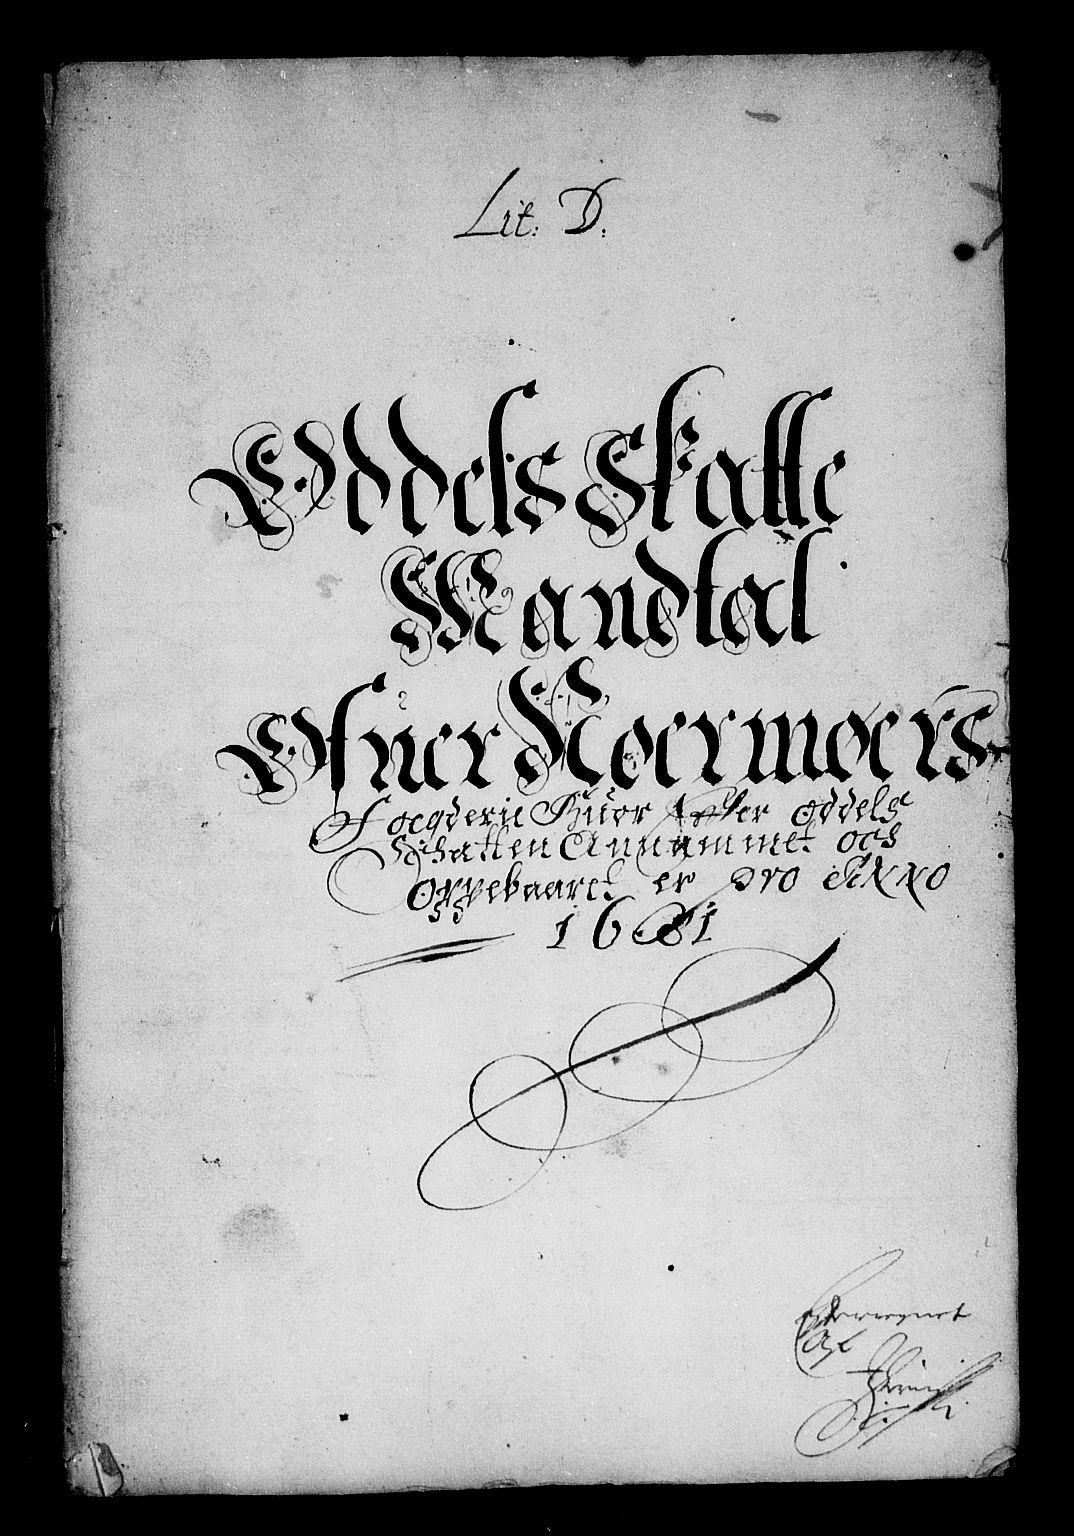 Lit: D:
Oddels Skatte
Mandtal
Ofuer Noermoers
Foegderie Huor Effter oddels
Schatten Annammet och
Oppebaaret er pro Anno
1681